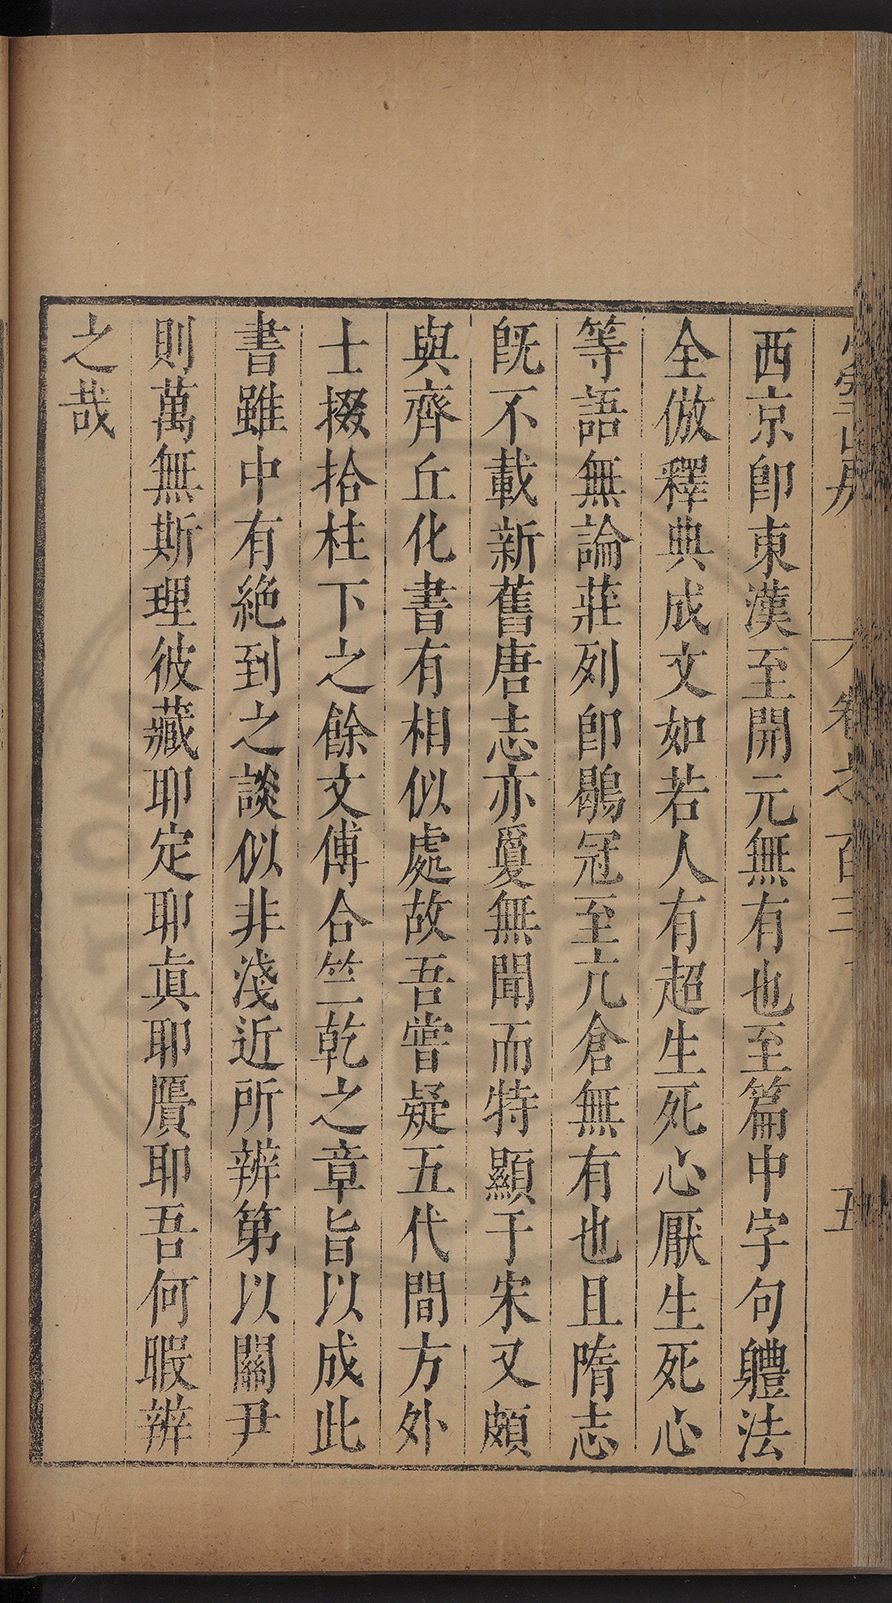 卷之百三
五
西京即東漢至開元無有也至篇中字句軆法
全倣釋典成文如若人有超生死心厭生死心
等語無論莊列即鶡冠至亢倉無有也且隋志
旣不載新舊唐志亦敻無聞而特顯于宋又頗
與齊丘化書有相似處故吾嘗疑五代間方外
士掇拾柱下之餘文傅合竺乾之章旨以成此
書雖中有絶到之談似非淺近所辨第以關尹
則萬無斯理彼藏耶定耶眞耶贗耶吾何暇辨
之哉